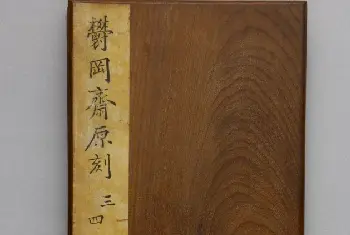 欝岡齋原刻
三
四